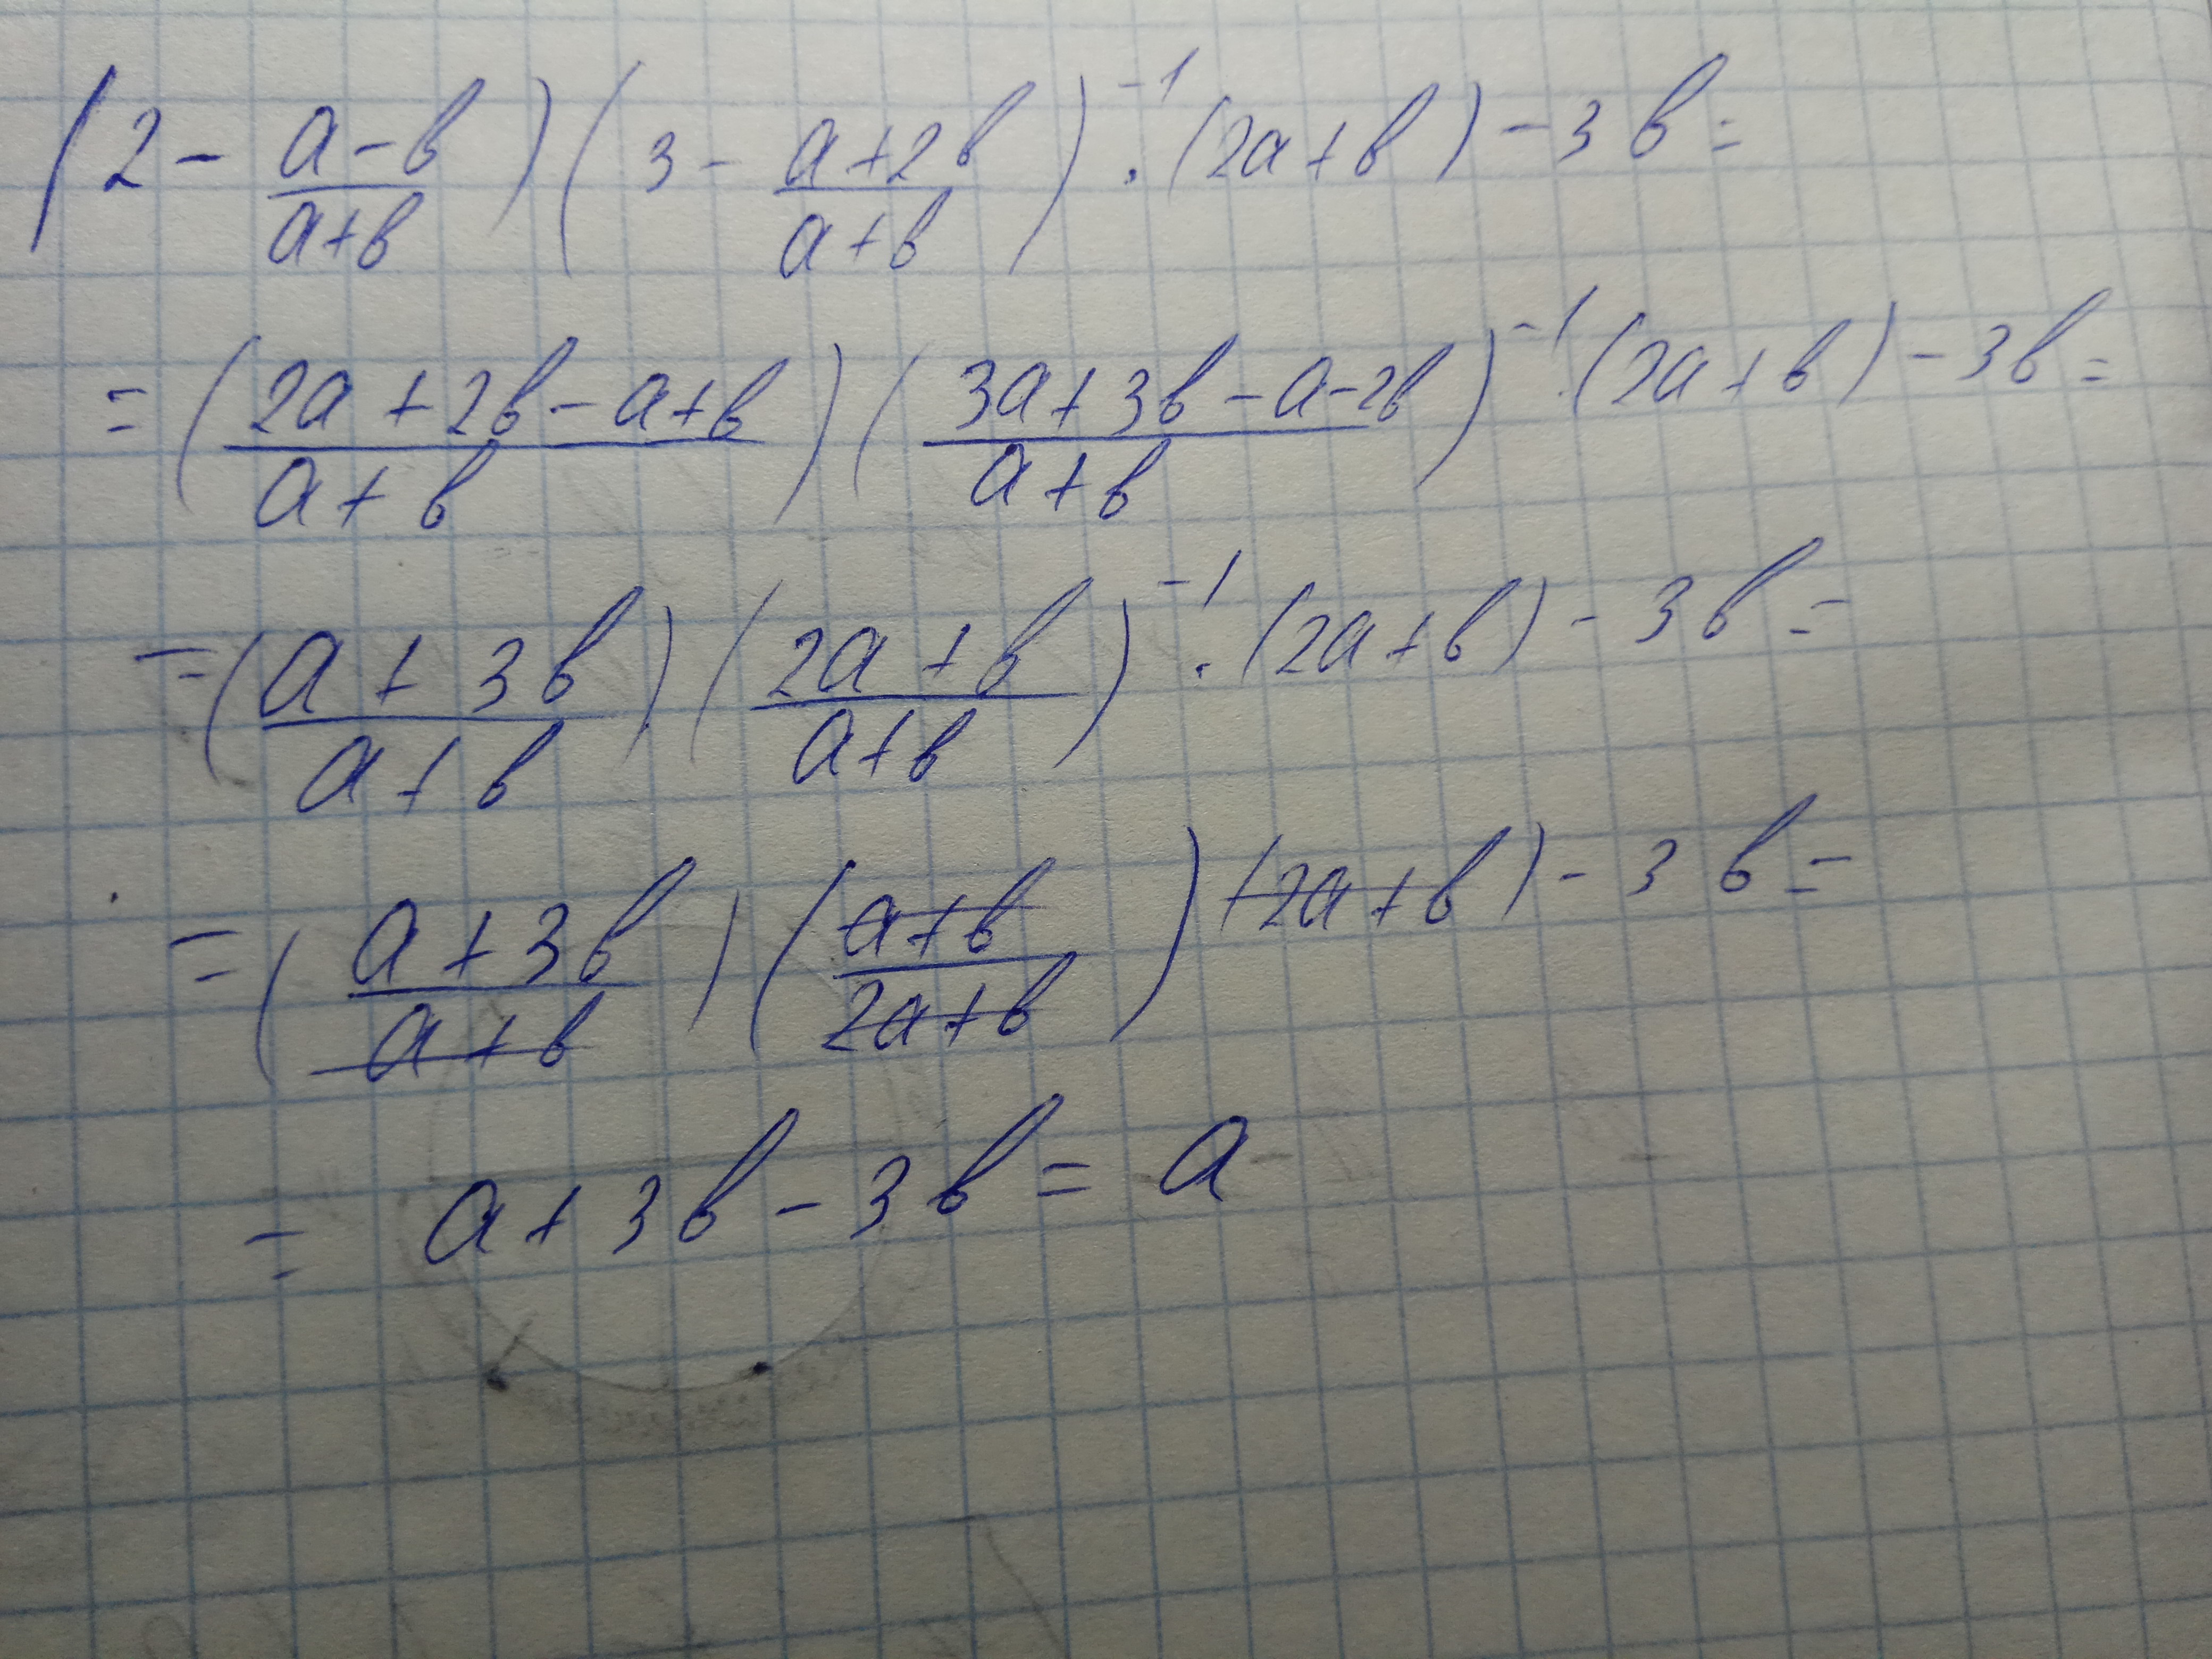 (2 - \frac{a-b}{a+b})(3 - \frac{a+2b}{a+b})^{-1} · (2a+b) - 3b =
= (\frac{2a+2b-a+b}{a+b})(\frac{3a+3b-a-2b}{a+b})^{-1} · (2a+b) - 3b =
= (\frac{a+3b}{a+b})(\frac{2a+b}{a+b})^{-1} · (2a+b) - 3b =
= (\frac{a+3b}{a+b})(\frac{a+b}{2a+b})(2a+b) - 3b =
= a+3b-3b = a